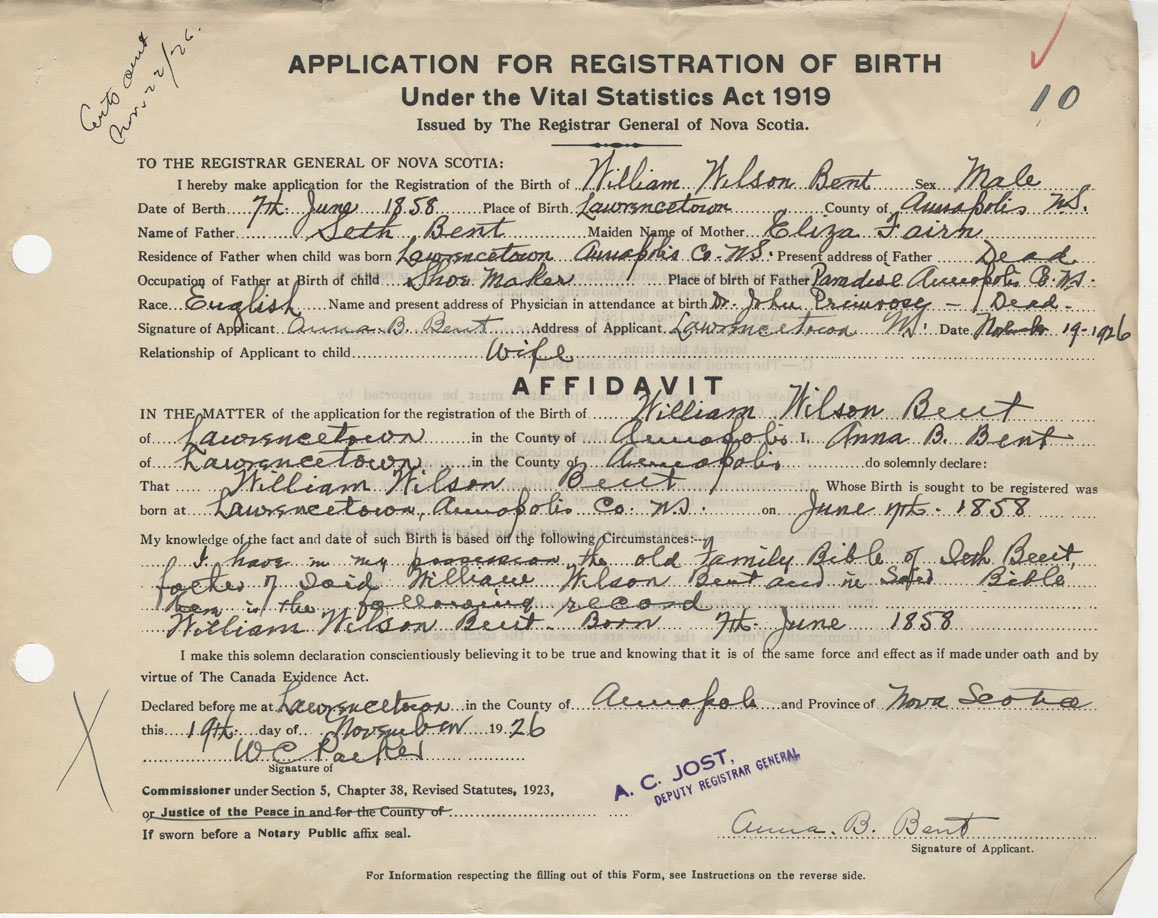 Certs sent
Nov. 22/26.
10
APPLICATION FOR REGISTRATION OF BIRTH
Under the Vital Statistics Act 1919
Issued by The Registrar General of Nova Scotia.
TO THE REGISTRAR GENERAL OF NOVA SCOTIA:
I hereby make application for the Registration of the Birth of William Wilson Bent Sex Male
Date of Berth 7th June 1858 Place of Birth Lawrencetown County of Annapolis N.S.
Name of Father Seth Bent Maiden Name of Mother Eliza Fairn
Residence of Father when child was born Lawrencetown Annapolis Co. N.S. Present address of Father Dead
Occupation of Father at Birth of child Shoe Maker Place of birth of Father Paradise Annapolis Co. N.S.
Race English Name and present address of Physician in attendance at birth Dr. John Primrose - Dead.
Signature of Applicant Anna B. Bent Address of Applicant Lawrencetown N.S. Date 19-1926
Relationship of Applicant to child Wife
AFFIDAVIT
IN THE MATTER of the application for the registration of the Birth of William Wilson Bent
of Lawrencetown in the County of Annapolis I, Anna B. Bent
of Lawrencetown in the County of Annapolis do solemnly declare:
That William Wilson Bent Whose Birth is sought to be registered was
born at Lawrencetown, Annapolis Co. N.S. on June 7th. 1858
My knowledge of the fact and date of such Birth is based on the following Circumstances:-
I have in my possession the old Family Bible of Seth Bent,
father of said William Wilson Bent and in said Bible
is the following record
William Wilson Bent. Born 7th June 1858
I make this solemn declaration conscientiously believing it to be true and knowing that it is of the same force and effect as if made under oath and by
virtue of The Canada Evidence Act.
Declared before me at Lawrencetown in the County of Annapolis and Province of Nova Scotia
this 19th day of November 1926
W C Parker
Signature of
Commissioner under Section 5, Chapter 38, Revised Statutes, 1923,
or Justice of the Peace in and for the County of
If sworn before a Notary Public affix seal.
A. C. JOST,
DEPUTY REGISTRAR GENERAL
Anna. B. Bent
Signature of Applicant.
For Information respecting the filling out of this Form, see Instructions on the reverse side.